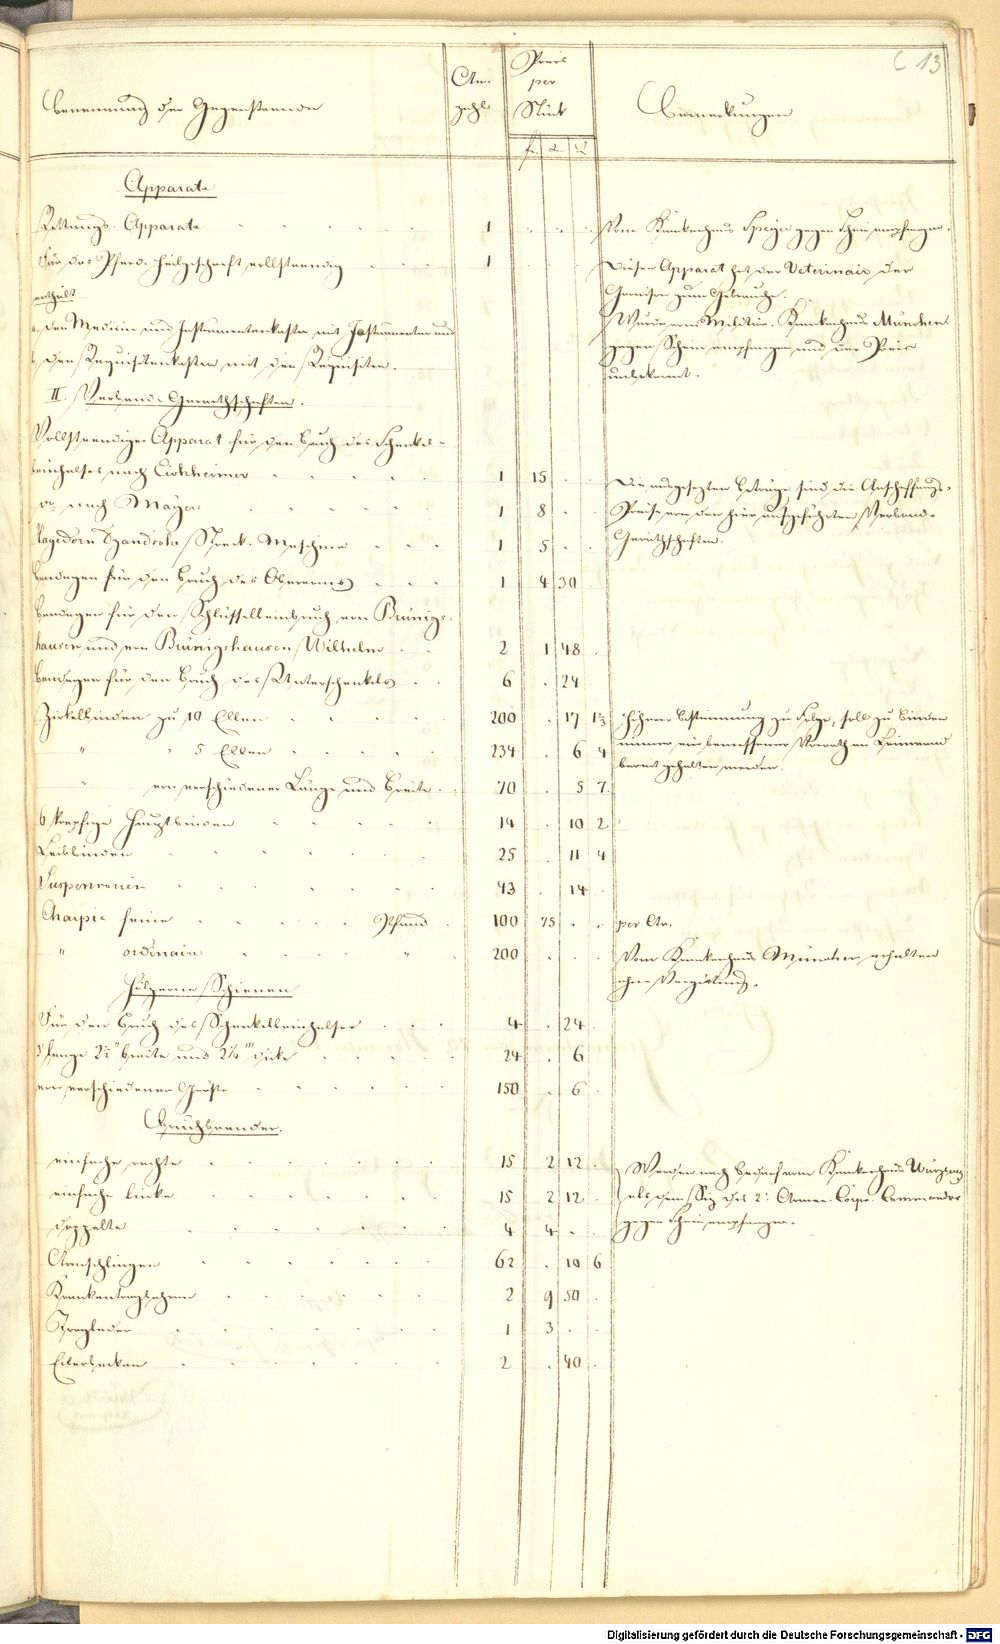 C 13
Benennung der Gegenstaende
An-
zahl
Preis
per
Stück
Bemerkungen
f. x
Apparate
Rettungs-Apparate 1
Vom Krankenhaus Speyer gegen Schein empfangen.
Für das Pferd vollstaendig 1
Dieser Apparat hat der Veterinair der
Garnison zum Gebrauche.
enthält
a, den Medizin und Instrumentenkasten mit Instrumenten und
Wurde vom Militär-Krankenhaus München
b, den Requisitenkasten mit den Requisiten.
gegen Schein empfangen und der Preis
unbekannt.
II. Verband-Geraethschaften.
Vollstaendiger Apparat für den Bruch des Schenkel-
beinhalses nach Eichheimer 1 15
Die ausgesezten Betraege sind die Anschaffungs-
do nach Mayor 1 8
Preise von den hier aufgeführten Verband-
Hagedorn Dzondische Streck-Maschine 1 5
Geraethschaften.
Bandagen für den Bruch des Oberarms 1 4 30
Bandagen für den Schlüsselbeinbruch von Brünigs-
hausen und von Brünigshausen Wilhelm 2 1 48
Bandagen für den Bruch des Unterschenkels 6 24
Zirkelbinden zu 10 Ellen 200 17 1½
Höherer Bestimmung zu Folge, soll zu Binden
" " 5 Ellen 234 6 4
immer ein bemessener Vorrath an Leinwand
bereit gehalten werden.
" von verschiedener Länge und Breite 70 5 7
6 köpfige Hauptbinden 14 10 2
Leibbinden 25 11 4
Suspensorien 43 14
Charpie feine Pfund 100 75
per Ctr.
" ordinaire " 200
Vom Krankenhaus München erhalten
ohne Vergütung.
Hölzerne Schienen
Für den Bruch des Schenkelbeinhalses 4 24
lange 2½" breite und 2¼''' dicke 24 6
von verschiedener Größe 150 6
Bruchbaender.
einfache rechte 15 2 12
Werden nach Bedarf vom Krankenhaus Würzburg
einfache linke 15 2 12
als dem Siz des 2: Armee-Corps-Commandos
doppelte 4 4
gegen Schein empfangen.
Armschlingen 62 10 6
Krankentragbahren 2 9 50
Tragleder 1 3
Eiterbecken 2 40
Digitalisierung gefördert durch die Deutsche Forschungsgemeinschaft - DFG